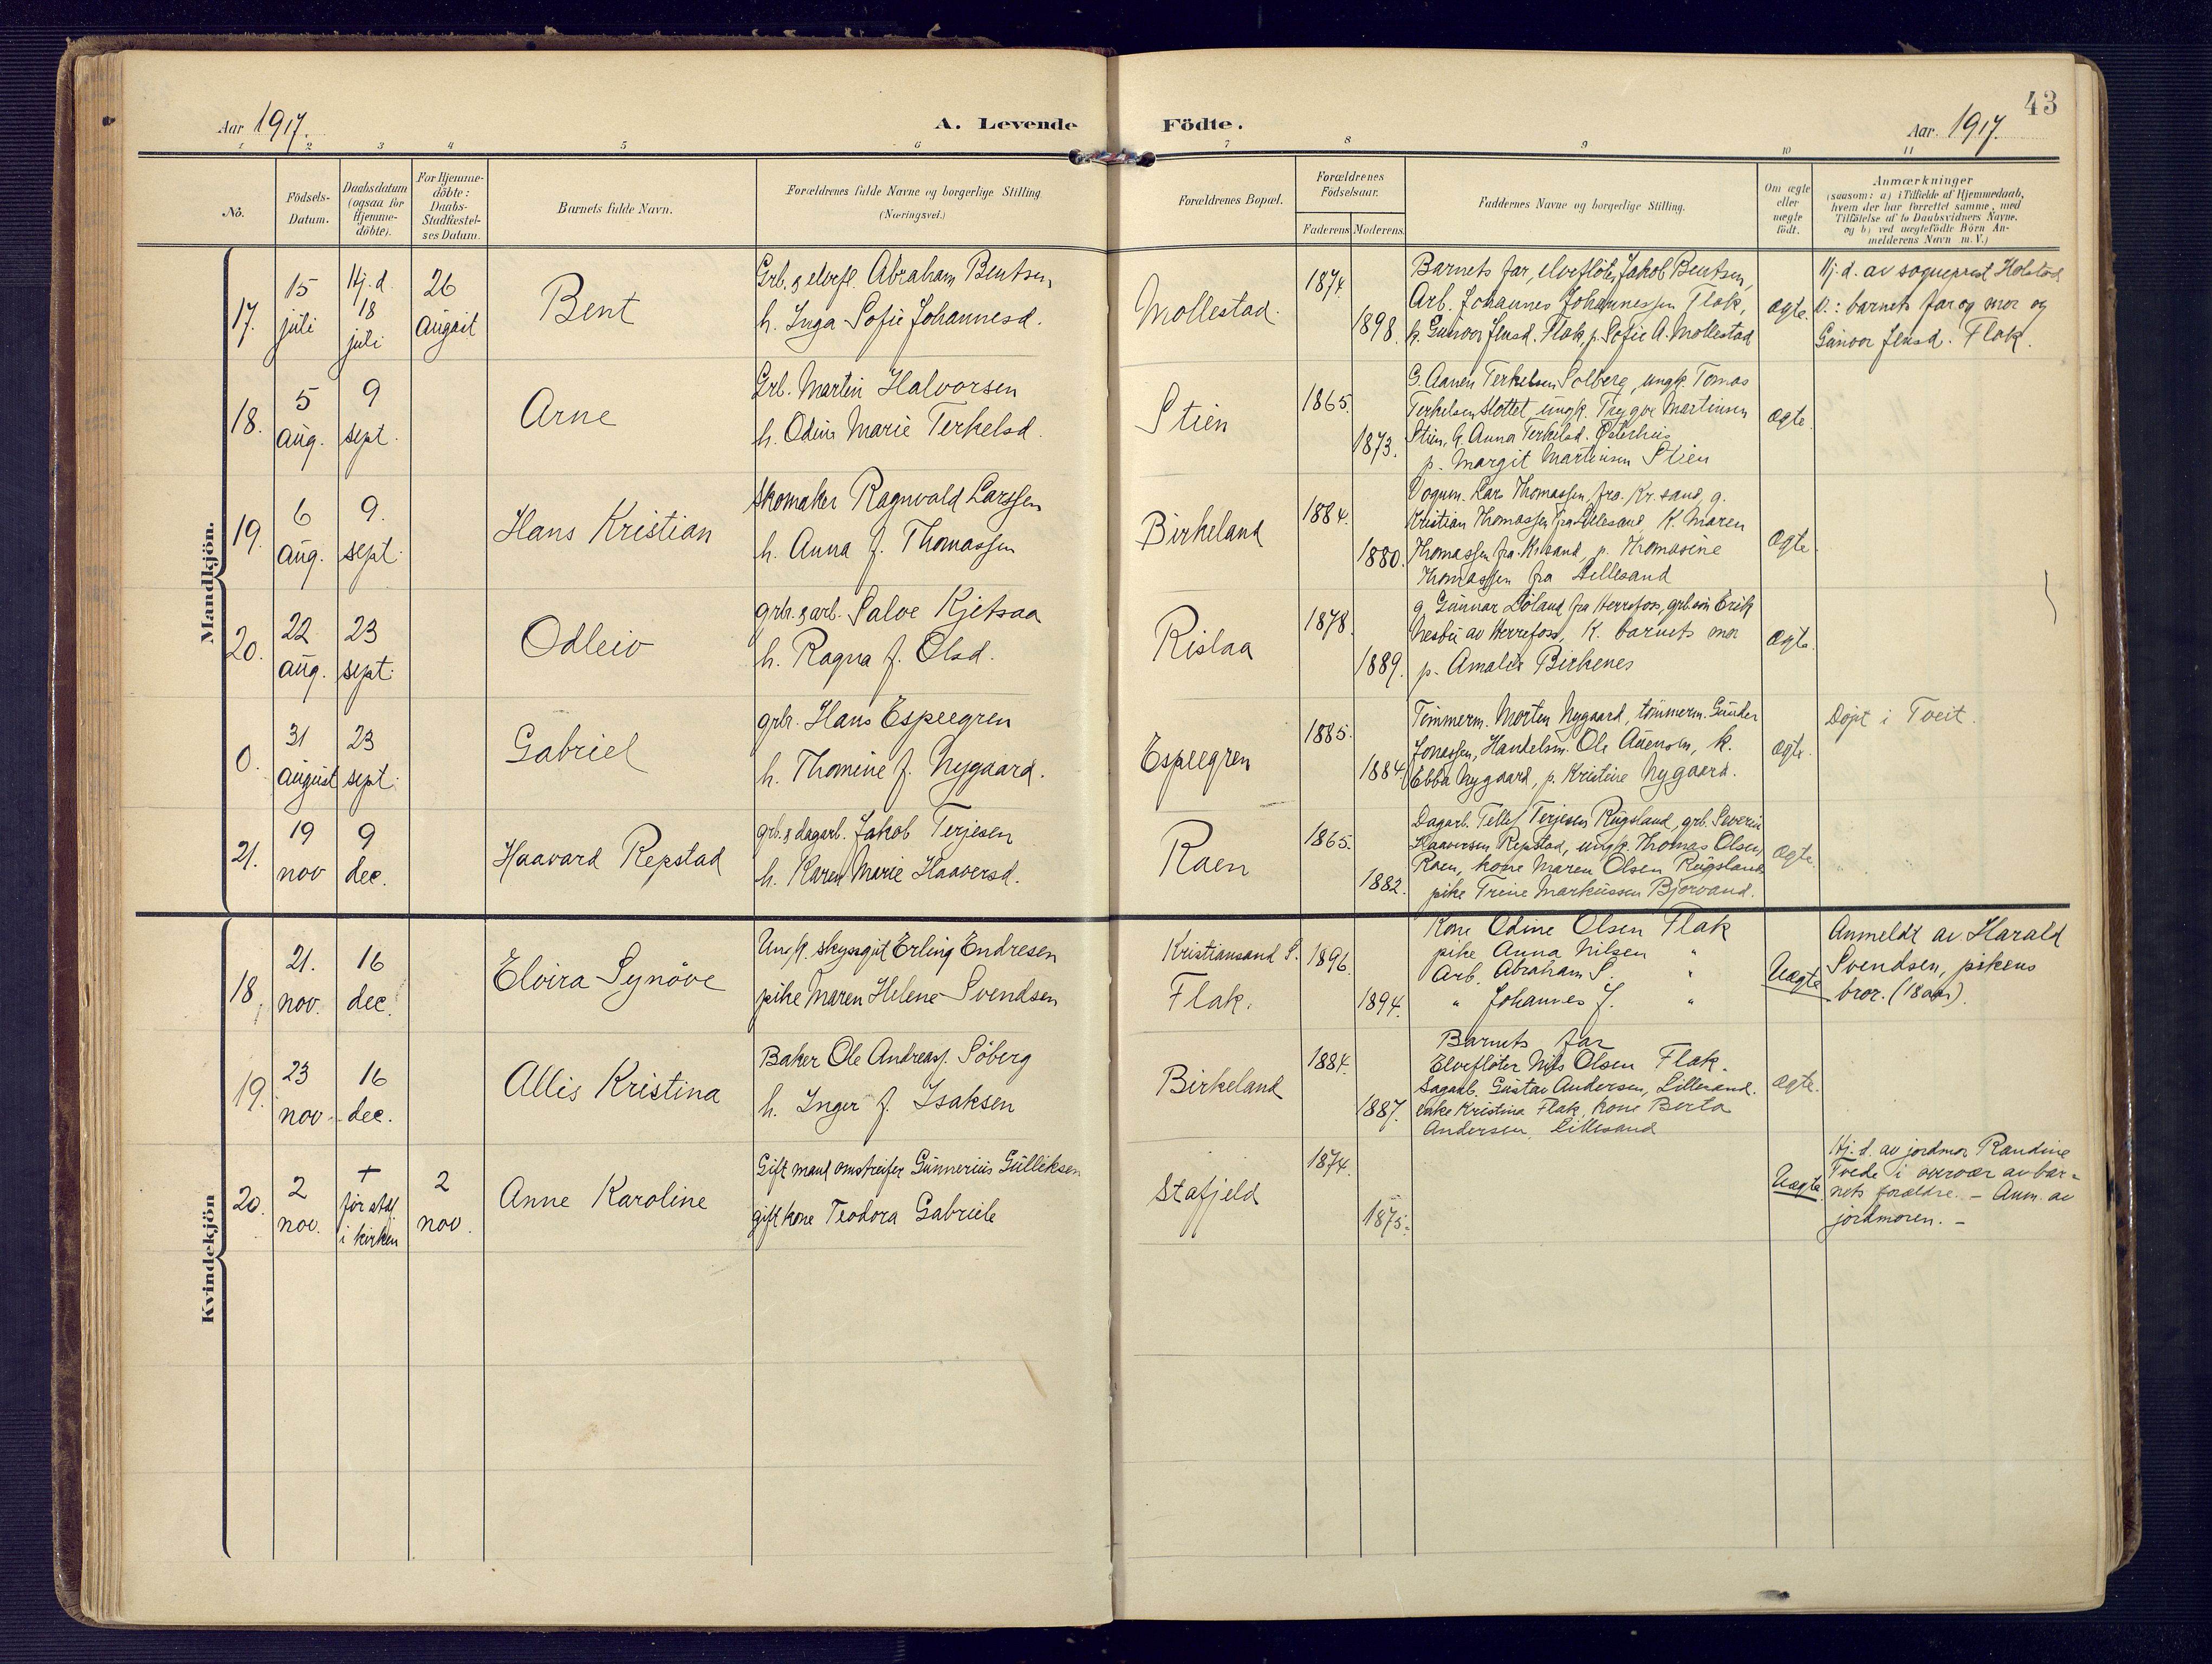 43
Aar 1917.
A. Levende
Födte.
Aar. 1917.
1 2 3 4 5 6 7 8 9 10 11
No.
Födsels-
Datum.
Daabsdatum
(ogsaa for
Hjemme-
döbte).
For Hjemme-
döbte:
Daabs-
Stadfæstel-
ses Datum.
Barnets fulde Navn.
Forældrenes fulde Navne og borgerlige Stilling
(Næringsvei.)
Forældrenes Bopæl.
Forældrenes
Födselsaar.
Faderens Moderens.
Faddernes Navne og borgerlige Stilling.
Om ægte
eller
uægte
födt.
Anmærkninger
(saasom: a) i Tilfælde af Hjemmedaab,
hvem der har forrettet samme, med
Tilföielse af to Daabsvidners Navne.
og b) ved uægtefödte Börn An-
melderens Navn m. V.)
Mandkjön.
17.
15
juli
Hj. d.
18
juli
26
august
Bent
Grb. & elvefl. Abraham Bentsen
h. Inga Sofie Johannesd.
Mollestad.
1874.
1898.
Barnets far, elvefløter Jakob Bentsen,
Arb. Johannes Johannessen Flak,
k. Gunvor Jensd. Flak, p. Sofie A. Mollestad
ægte.
Hj. d. av sogneprest Holstad
V.: barnets far og mor og
Gunvor Jensd. Flak.
18.
5
aug.
9
sept.
Arne
Grb. Martin Halvorsen
h. Odine Marie Terkelsd.
Stien
1865.
1873.
G. Aanen Terkelsen Solberg, ungk. Tomas
Terkelsen Slottet, ungk. Trygve Martinsen
Stien, k. Anna Terkelsd. Østerhus
p. Margit Martinsen Stien
ægte.
19.
6
aug.
9.
sept.
Hans Kristian
Skomaker Ragnvald Larssen
h. Anna f. Thomassen
Birkeland
1884.
1880.
Vognm. Lars Thomassen fra Kr.sand, g.
Kristian Thomassen fra Lillesand, K. Maren
Thomassen fra Kr.sand, p. Thomasine
Thomassen fra Lillesand
ægte.
20.
22
aug.
23
sept.
Odleiv
grb. & arb. Salve Kjetsaa
h. Ragna f. Olsd.
Rislaa
1878.
1889.
g. Gunnar Löland fra Herrefoss, grb.sön Erik
Nesbu av Herrefoss, K. barnets mor
p. Amalie Birkenes
ægte.
0.
31
august
23
sept.
Gabriel
grb. Hans Espeegren
h. Thomine f. Nygaard.
Espeegren
1885.
1884.
Tömmerm. Morten Nygaard, tömmerm. Gunder
Jonassen, Handelsm. Ole Auensen, k.
Ebba Nygaard, p. Kristine Nygaard.
ægte.
Döpt i Tveit.
21.
19
nov
9
dec.
Haavard Repstad
grb. & dagarb. Jakob Terjesen
h. Karen Marie Haaversd.
Raen
1865.
1882.
Dagarb. Tellef Terjesen Rugsland, grb. Severin
Haaversen Repstad, ungk. Thomas Olsen,
Raen, kone Maren Olsen Rugsland
pike Trine Markussen Bjorvand.
ægte.
Kvindekjön
18.
21.
nov.
16
dec.
Elvira Synöve
Ungk. skyssgut Erling Endresen
pike Maren Helene Svendsen
Kristiansand S.
Flak.
1896.
1894.
Kone Odine Olsen Flak
pike Anna Nilsen "
Arb. Abraham S. "
" Johannes J. "
Uægte
Anmeldt av Harald
Svendsen, pikens
bror. (18 aar).
19.
23
nov.
16
dec.
Allis Kristina
Baker Ole Andreas. Söberg
h. Inger f. Isaksen
Birkeland
1884.
1887.
Barnets far
Elvefløter Nils Olsen Flak.
Sagarb. Gustav Andersen, Lillesand.
enke Kristina Flak, kone Berta
Andersen, Lillesand
ægte.
20.
2
nov.
+
för stadf
i kirken
2
nov.
Anne Karoline
Gift mand omstreifer Gunnerius Gulliksen
gift kone Teodora Gabriele
Stafjeld
1874.
1875.
Uægte
Hj. d. av jordmor Randine
Tvede i overvær av bar-
nets forældre. – Anm. av
jordmoren. –